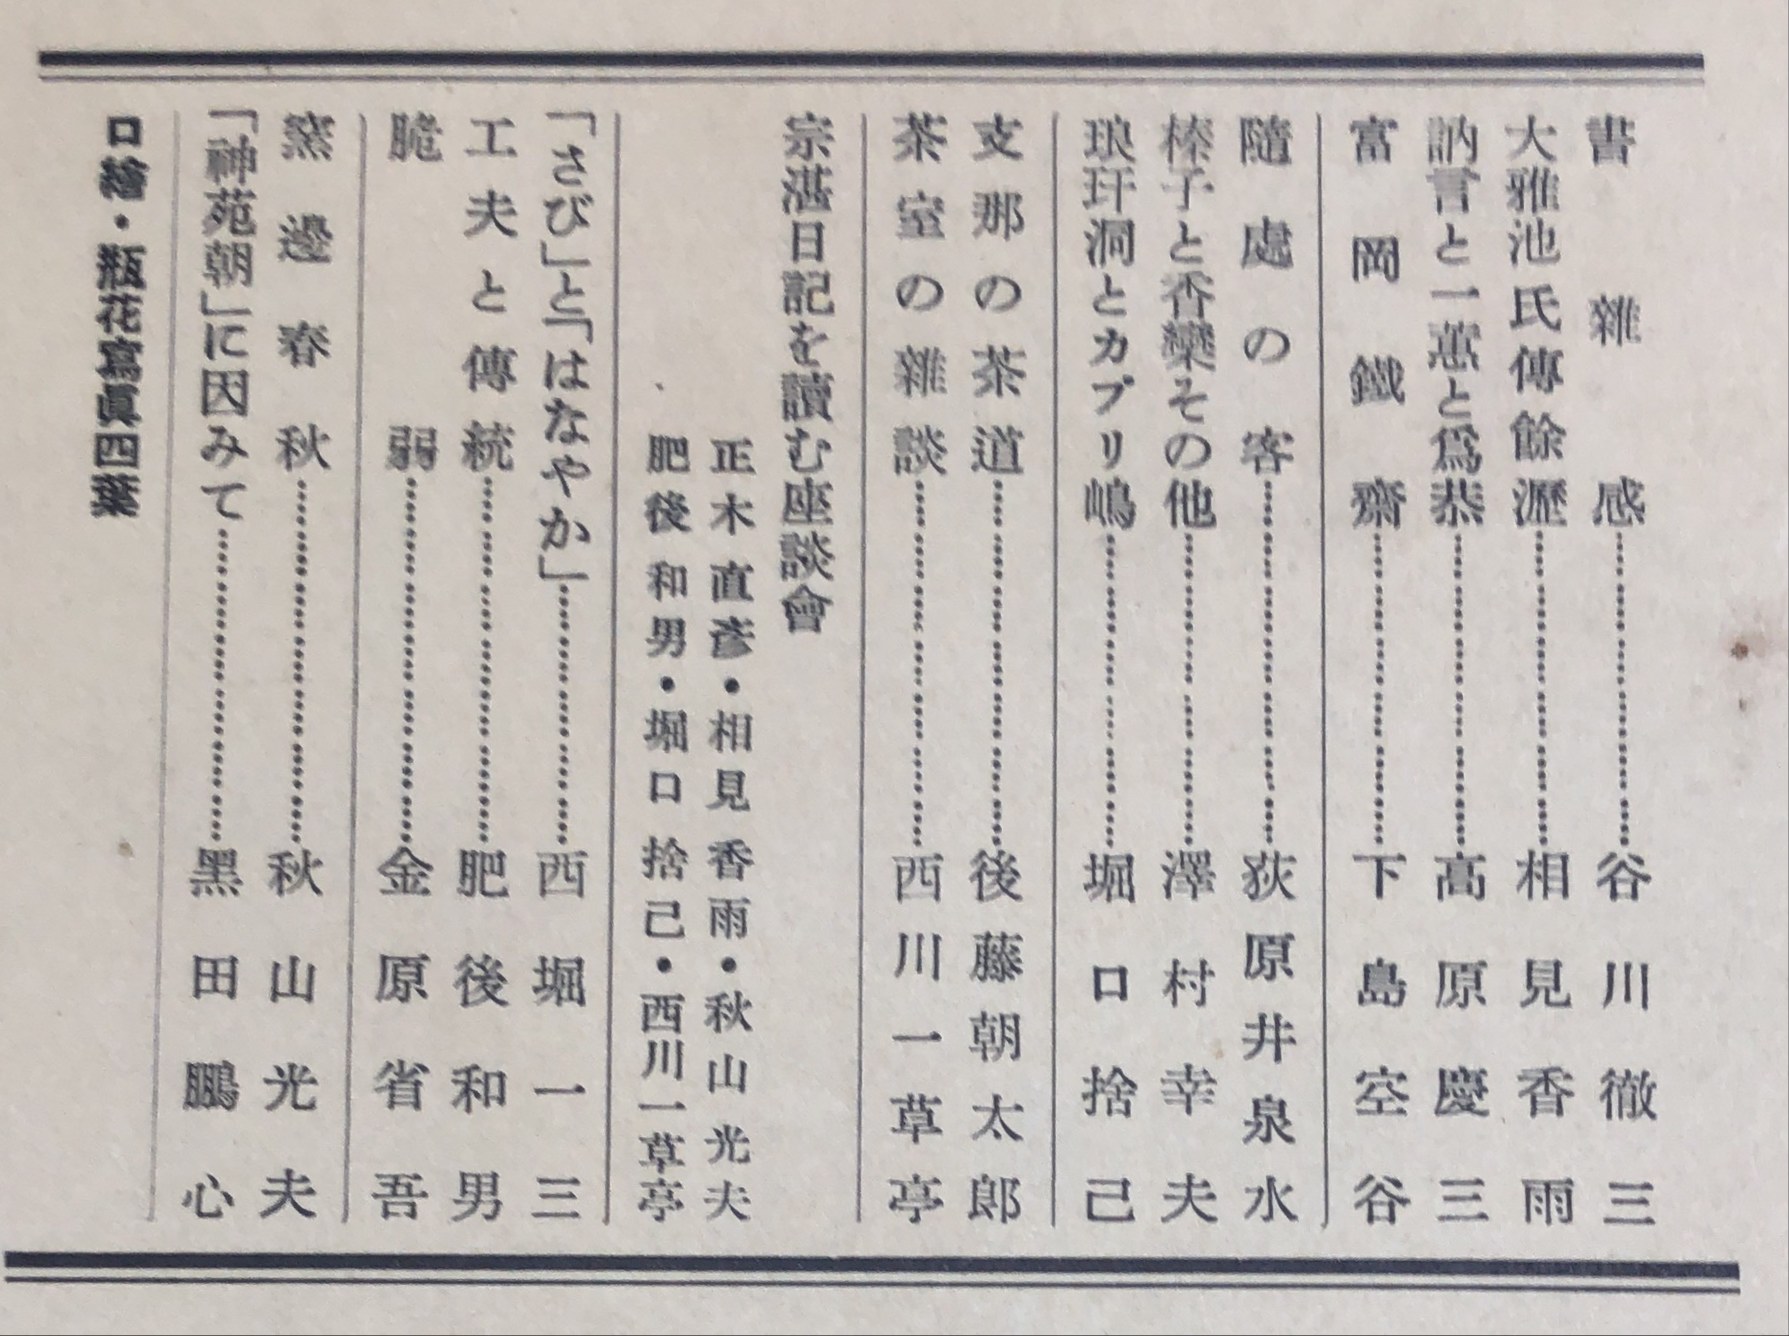 書雜感………谷川徹三
大雅池氏傳餘瀝………相見香雨
訥言と一蕙と爲恭………高原慶三
富岡鐵齋………下島空谷
隨處の客………荻原井泉水
榛子と香欒その他………澤村幸夫
琅玕洞とカプリ嶋………堀口捨己
支那の茶道………後藤朝太郎
茶室の雜談………西川一草亭
宗湛日記を讀む座談會
正木直彥・相見香雨・秋山光夫
肥後和男・堀口捨己・西川一草亭
「さび」と「はなやか」………西堀一三
工夫と傳統………肥後和男
脆弱………金原省吾
窯邊春秋………秋山光夫
「神苑朝」に因みて………黑田鵬心
口繪・瓶花寫眞四葉